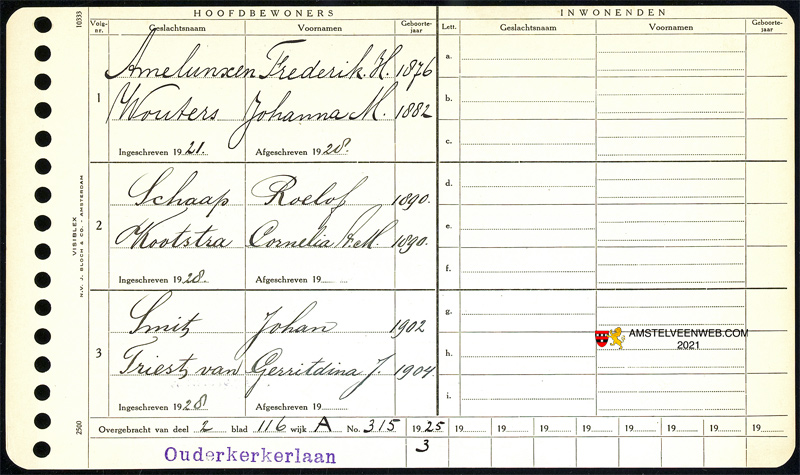 10333
HOOFDBEWONERS INWONENDEN
Volg-nr. Geslachtsnaam Voornamen Geboorte-jaar Lett. Geslachtsnaam Voornamen Geboorte-jaar
1
Amelunxen Frederik. H. 1876
Wouters Johanna M. 1882
Ingeschreven 1921. Afgeschreven 1928.
2
Schaap Roelof 1890.
Kootstra Cornelia A.M. 1890.
Ingeschreven 1928. Afgeschreven 19
3
Smit, Johan 1902
Triest van Gerritdina J. 1904
Ingeschreven 1928 Afgeschreven 19
a.
b.
c.
d.
e.
f.
g.
h.
i.
AMSTELVEENWEB.COM
2021
VISIBLEX
N.V. J. BLOCH & CO. - AMSTERDAM
2500
Overgebracht van deel 2 blad 116 wijk A No. 315 1925 19 19 19 19 19 19 19 19
3
Ouderkerkerlaan